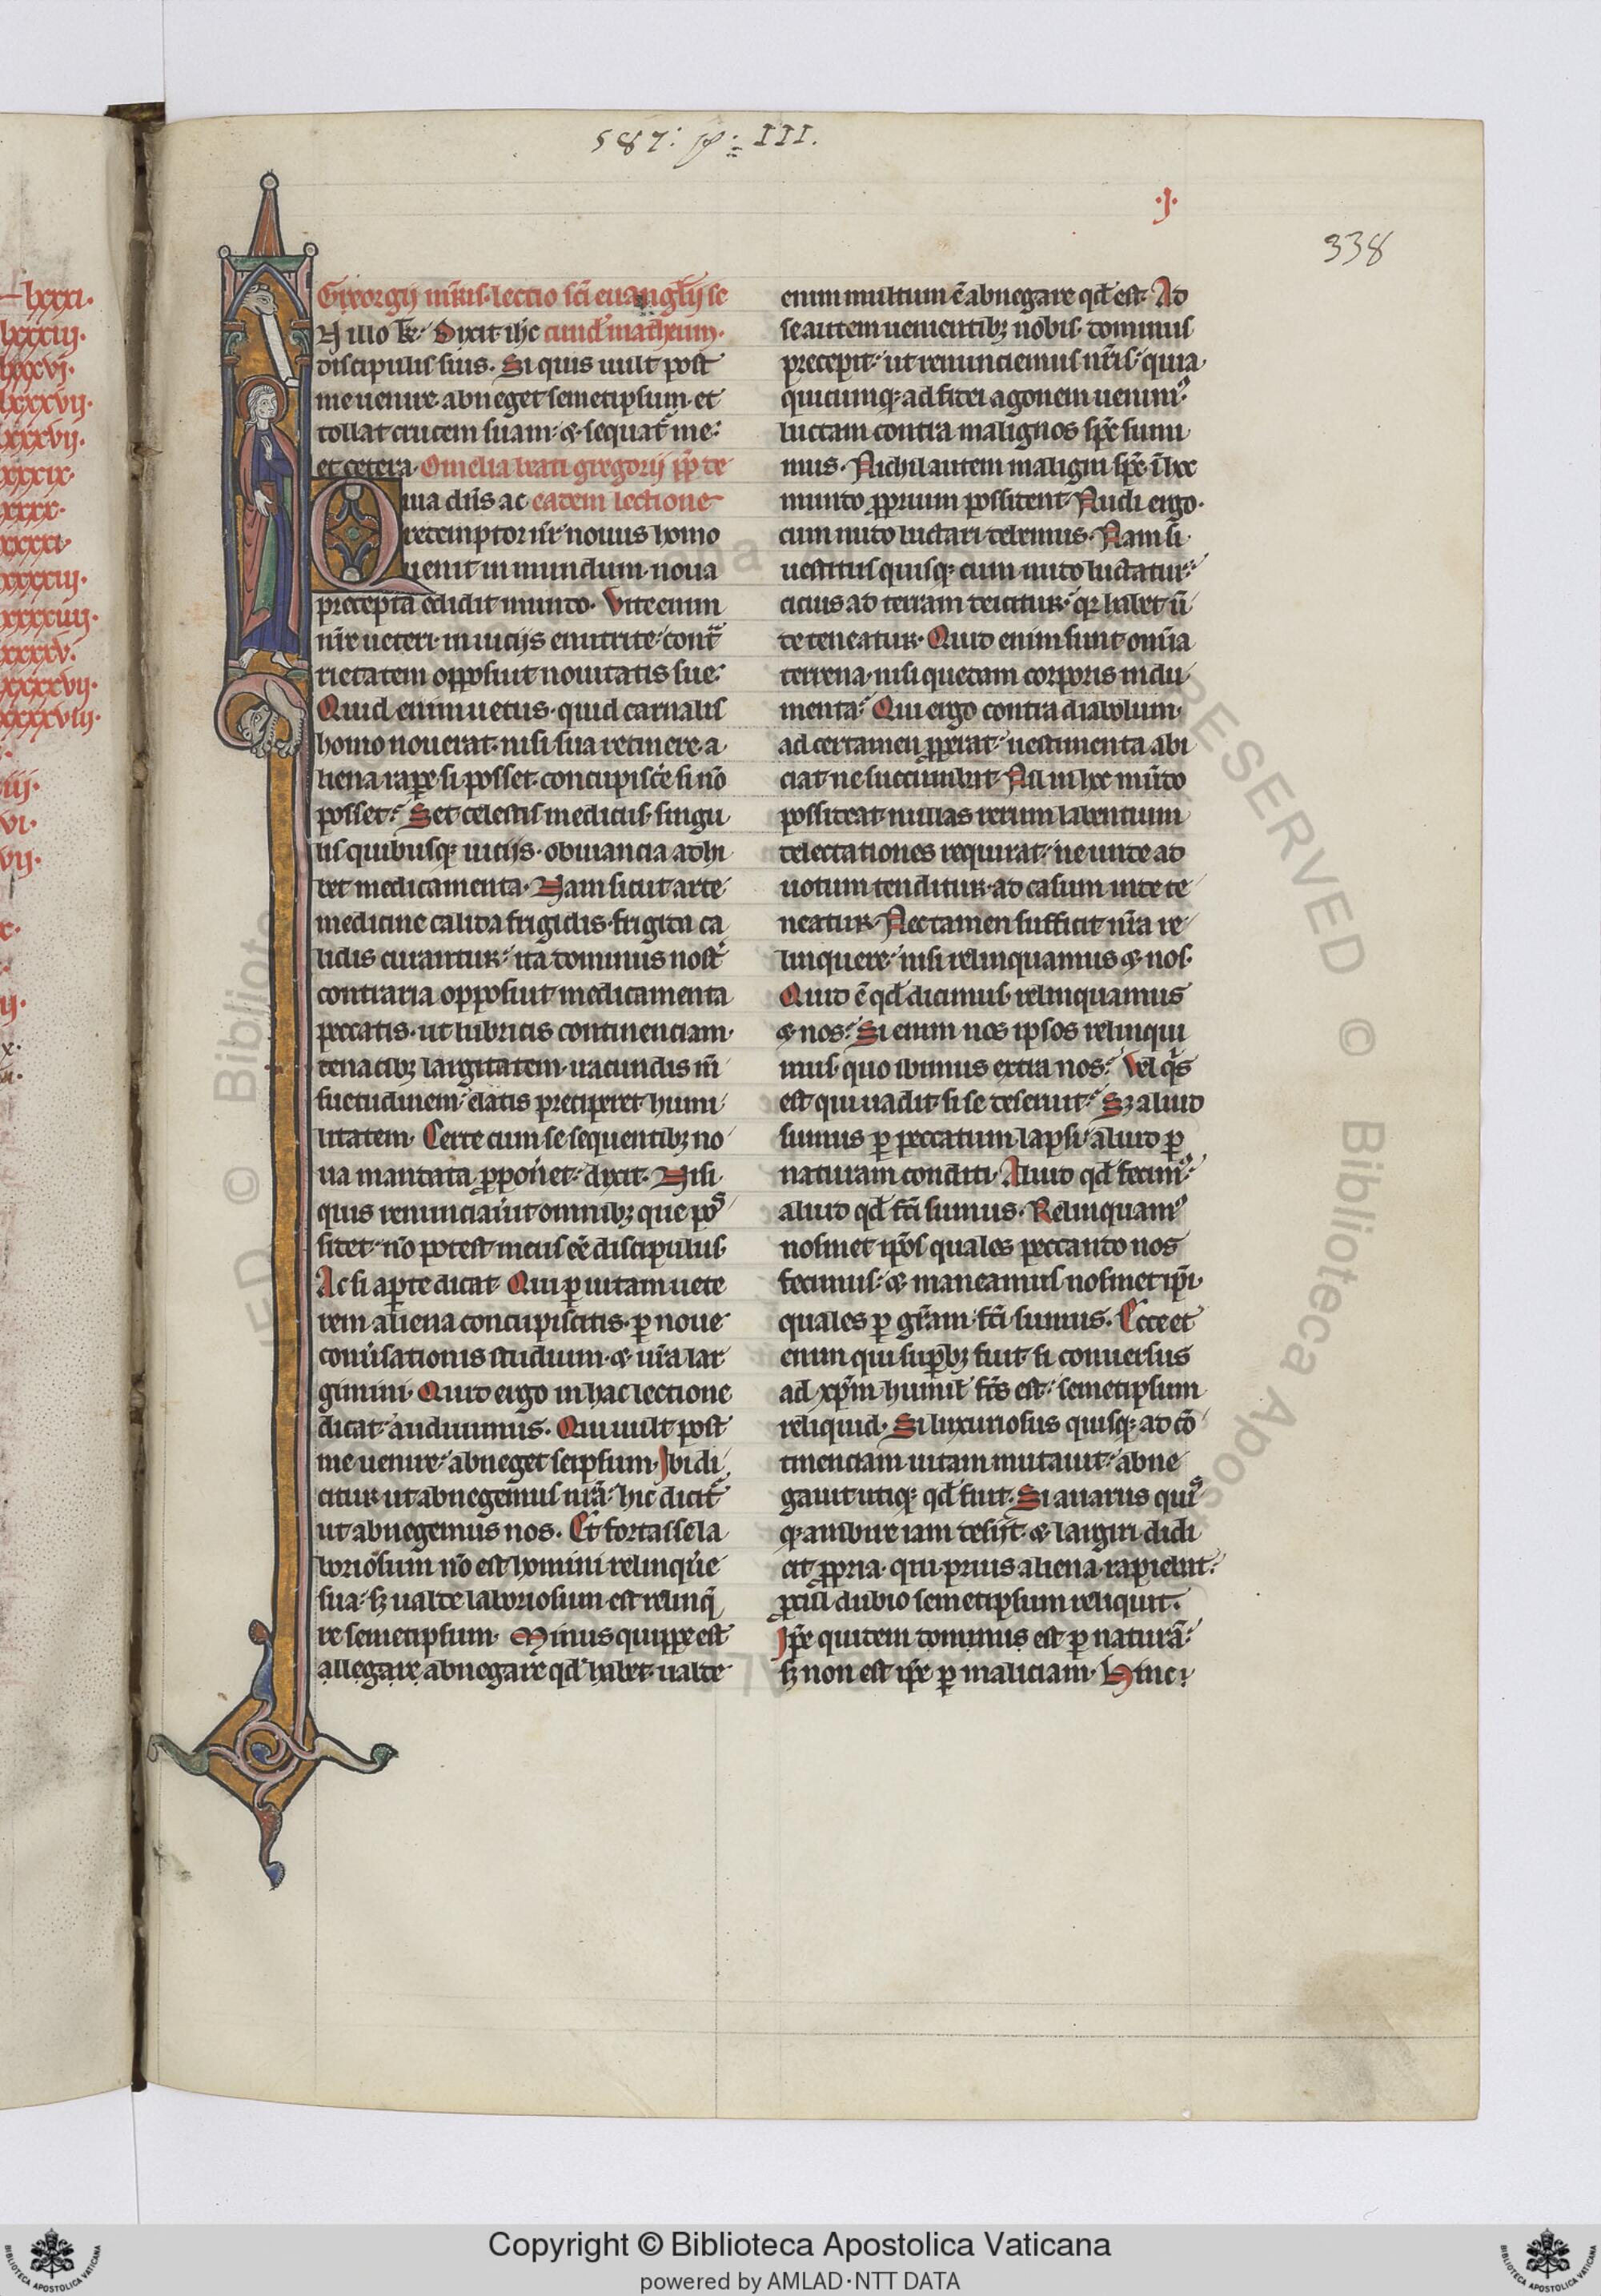 587: p: III.
·j·
338
Georgij mr̄is· lectio sc̄i euāgelij se
N illo t̄r· Dixit ih̄c cund̄ matheum·
discipulis suis· Si quis uult post
me uenire abneget semetipsum· et
tollat crucem suam· ⁊ sequat᷑ me·
et cetera· Omelia beati gregorij pp̄ de
Quia dn̄s ac eadem lectione
redemptor nr̄ nouus homo
uenit in mundum· noua
precepta edidit mundo· Vite enim
nr̄e ueteri· in uicijs enutrite· cont̄
rietatem opposuit nouitatis sue·
Quid enim uetus· quid carnalis
homo nouerat· nisi sua retinere· a
liena rap̄e si posset· concupisc̄e si nō
posset· Set celestis medicus· singu
lis quibusq; uicijs· obuiancia adhi
bet medicamenta· Nam sicut arte
medicine calida frigidis· frigida ca
lidis curantur· ita dominus nost̄
contraria opposuit medicamenta
peccatis· ut lubricis continenciam·
tenacib; largitatem· iracundis m̄
suetudinem· elatis preciperet humi
litatem· Certe cum se sequentib; no
ua mandata p̄poneret· dixit· Nisi
quis renunciauerit omnib; que pos
sidet· nō potest meus ēe discipulus·
Ac si ap̄te dicat· Qui p̄ uitam uete
rem aliena concupiscitis· p̄ noue
conuersationis studium· ⁊ ur̄a lar
gimini· Quid ergo in hac lectione
dicat audiuimus· Qui uult post
me uenire· abneget seipsum· Ibi di
citur ut abnegemus nr̄a· hic dicit᷑
ut abnegemus nos· Et fortasse la
boriosum nō est homini relinquere
sua· s; ualde laboriosum est relinq̄
re semetipsum· Minus quippe est
allegare abnegare qd̄ habet· ualde
enim multum ē abnegare qd̄ est· Ad
se autem uenientib; nobis· dominus
precepit· ut renunciemus nr̄is· quia
quicumq; ad fidei agonem uenim᷒
luctam contra malignos sp̄c sumi
mus· Nichil autem maligni sp̄c ī hoc
mundo p̄prium possident· Nudi ergo·
cum nudo luctari debemus· Nam si
uestitus quisq; cum nudo luctatur·
cicius ad terram deicitur· q̄ habet ū
de teneatur· Quid enim sunt omīa
terrena· nisi quedam corporis indu
menta· Qui ergo contra diabolum·
ad certamen p̄perat· uestimenta abi
ciat ne succumbat· Nil in hoc mūdo
possideat· nullas rerum labentium
delectationes requirat· ne unde ad
uotum tenditur· ad casum inde te
neatur· Nec tamen sufficit nr̄a re
linquere· nisi relinquamus ⁊ nos·
Quid ē qd̄ dicimus· relinquamus
⁊ nos· Si enim nos ipsos relinqui
mus· quo ibimus extra nos· Vel q̄s
est qui uadit· si se deseruit· S; aliud
sumus p̄ peccatum lapsi· aliud p̄
naturam conditi· Aliud qd̄ fecim᷒
aliud qd̄ fc̄i sumus· Relinquam᷒
nosmet ip̄os quales peccando nos
fecimus· ⁊ maneamus nosmet ip̄i
quales p̄ gr̄am fc̄i sumus· Ecce et
enim qui sup̄b; fuit· si conuersus
ad xp̄m humil̄ fc̄s est· semetipsum
reliquid· Si luxuriosus quisq; ad cō
tinenciam uitam mutauit· abne
gauit utiq; qd̄ fuit· Si auarus quis
q; ambire iam desijt· ⁊ largiri didi
cit p̄pria· qui prius aliena rapiebat·
p̄cul dubio semetipsum reliquit·
Ip̄e quidem dominus est p̄ naturā·
s; non est ip̄e p̄ maliciam· Hinc·
lxxxi·
lxxxiij·
lxxxvj·
lxxxvij·
Copyright © Biblioteca Apostolica Vaticana
powered by AMLAD·NTT DATA